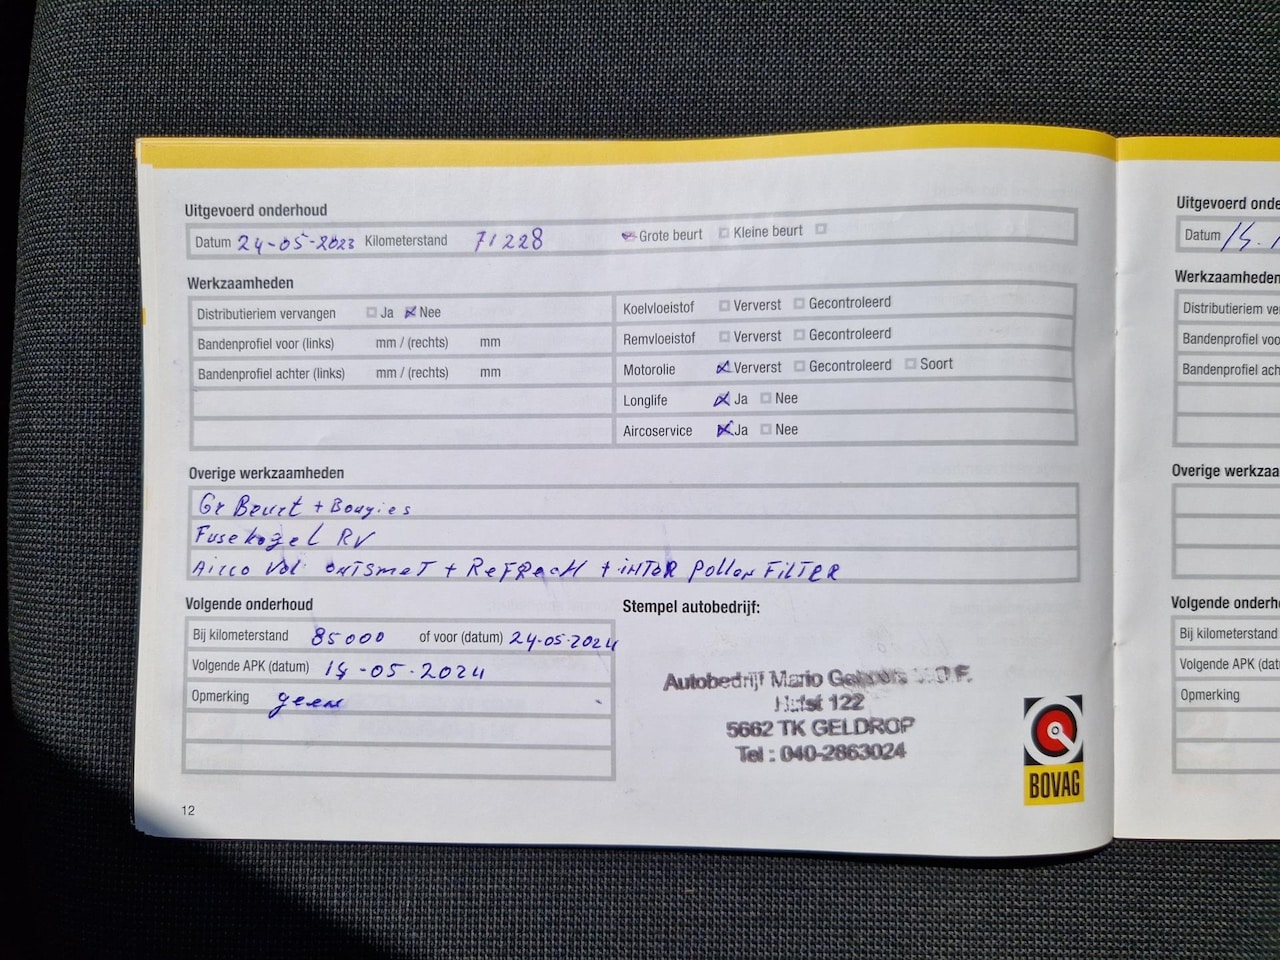 Uitgevoerd onderhoud
Datum 24-05-2023 Kilometerstand 71228 Grote beurt Kleine beurt
Werkzaamheden
Distributieriem vervangen Ja Nee
Bandenprofiel voor (links) mm / (rechts) mm
Bandenprofiel achter (links) mm / (rechts) mm
Koelvloeistof Ververst Gecontroleerd
Remvloeistof Ververst Gecontroleerd
Motorolie Ververst Gecontroleerd Soort
Longlife Ja Nee
Aircoservice Ja Nee
Overige werkzaamheden
Gr Beurt + Bougies
Fusekogel RV
Airco Vol ontsmet + Refresh + inter pollen Filter
Volgende onderhoud
Bij kilometerstand 85000 of voor (datum) 24-05-2024
Volgende APK (datum) 14-05-2024
Opmerking geen
Stempel autobedrijf:
Autobedrijf Mario V.O.F.
122
5662 TK GELDROP
Tel : 040-2863024
BOVAG
12
Uitgevoerd onde
Datum
Werkzaamheden
Distributieriem ve
Bandenprofiel voo
Bandenprofiel ach
Overige werkza
Volgende onderh
Bij kilometerstand
Volgende APK (dat
Opmerking